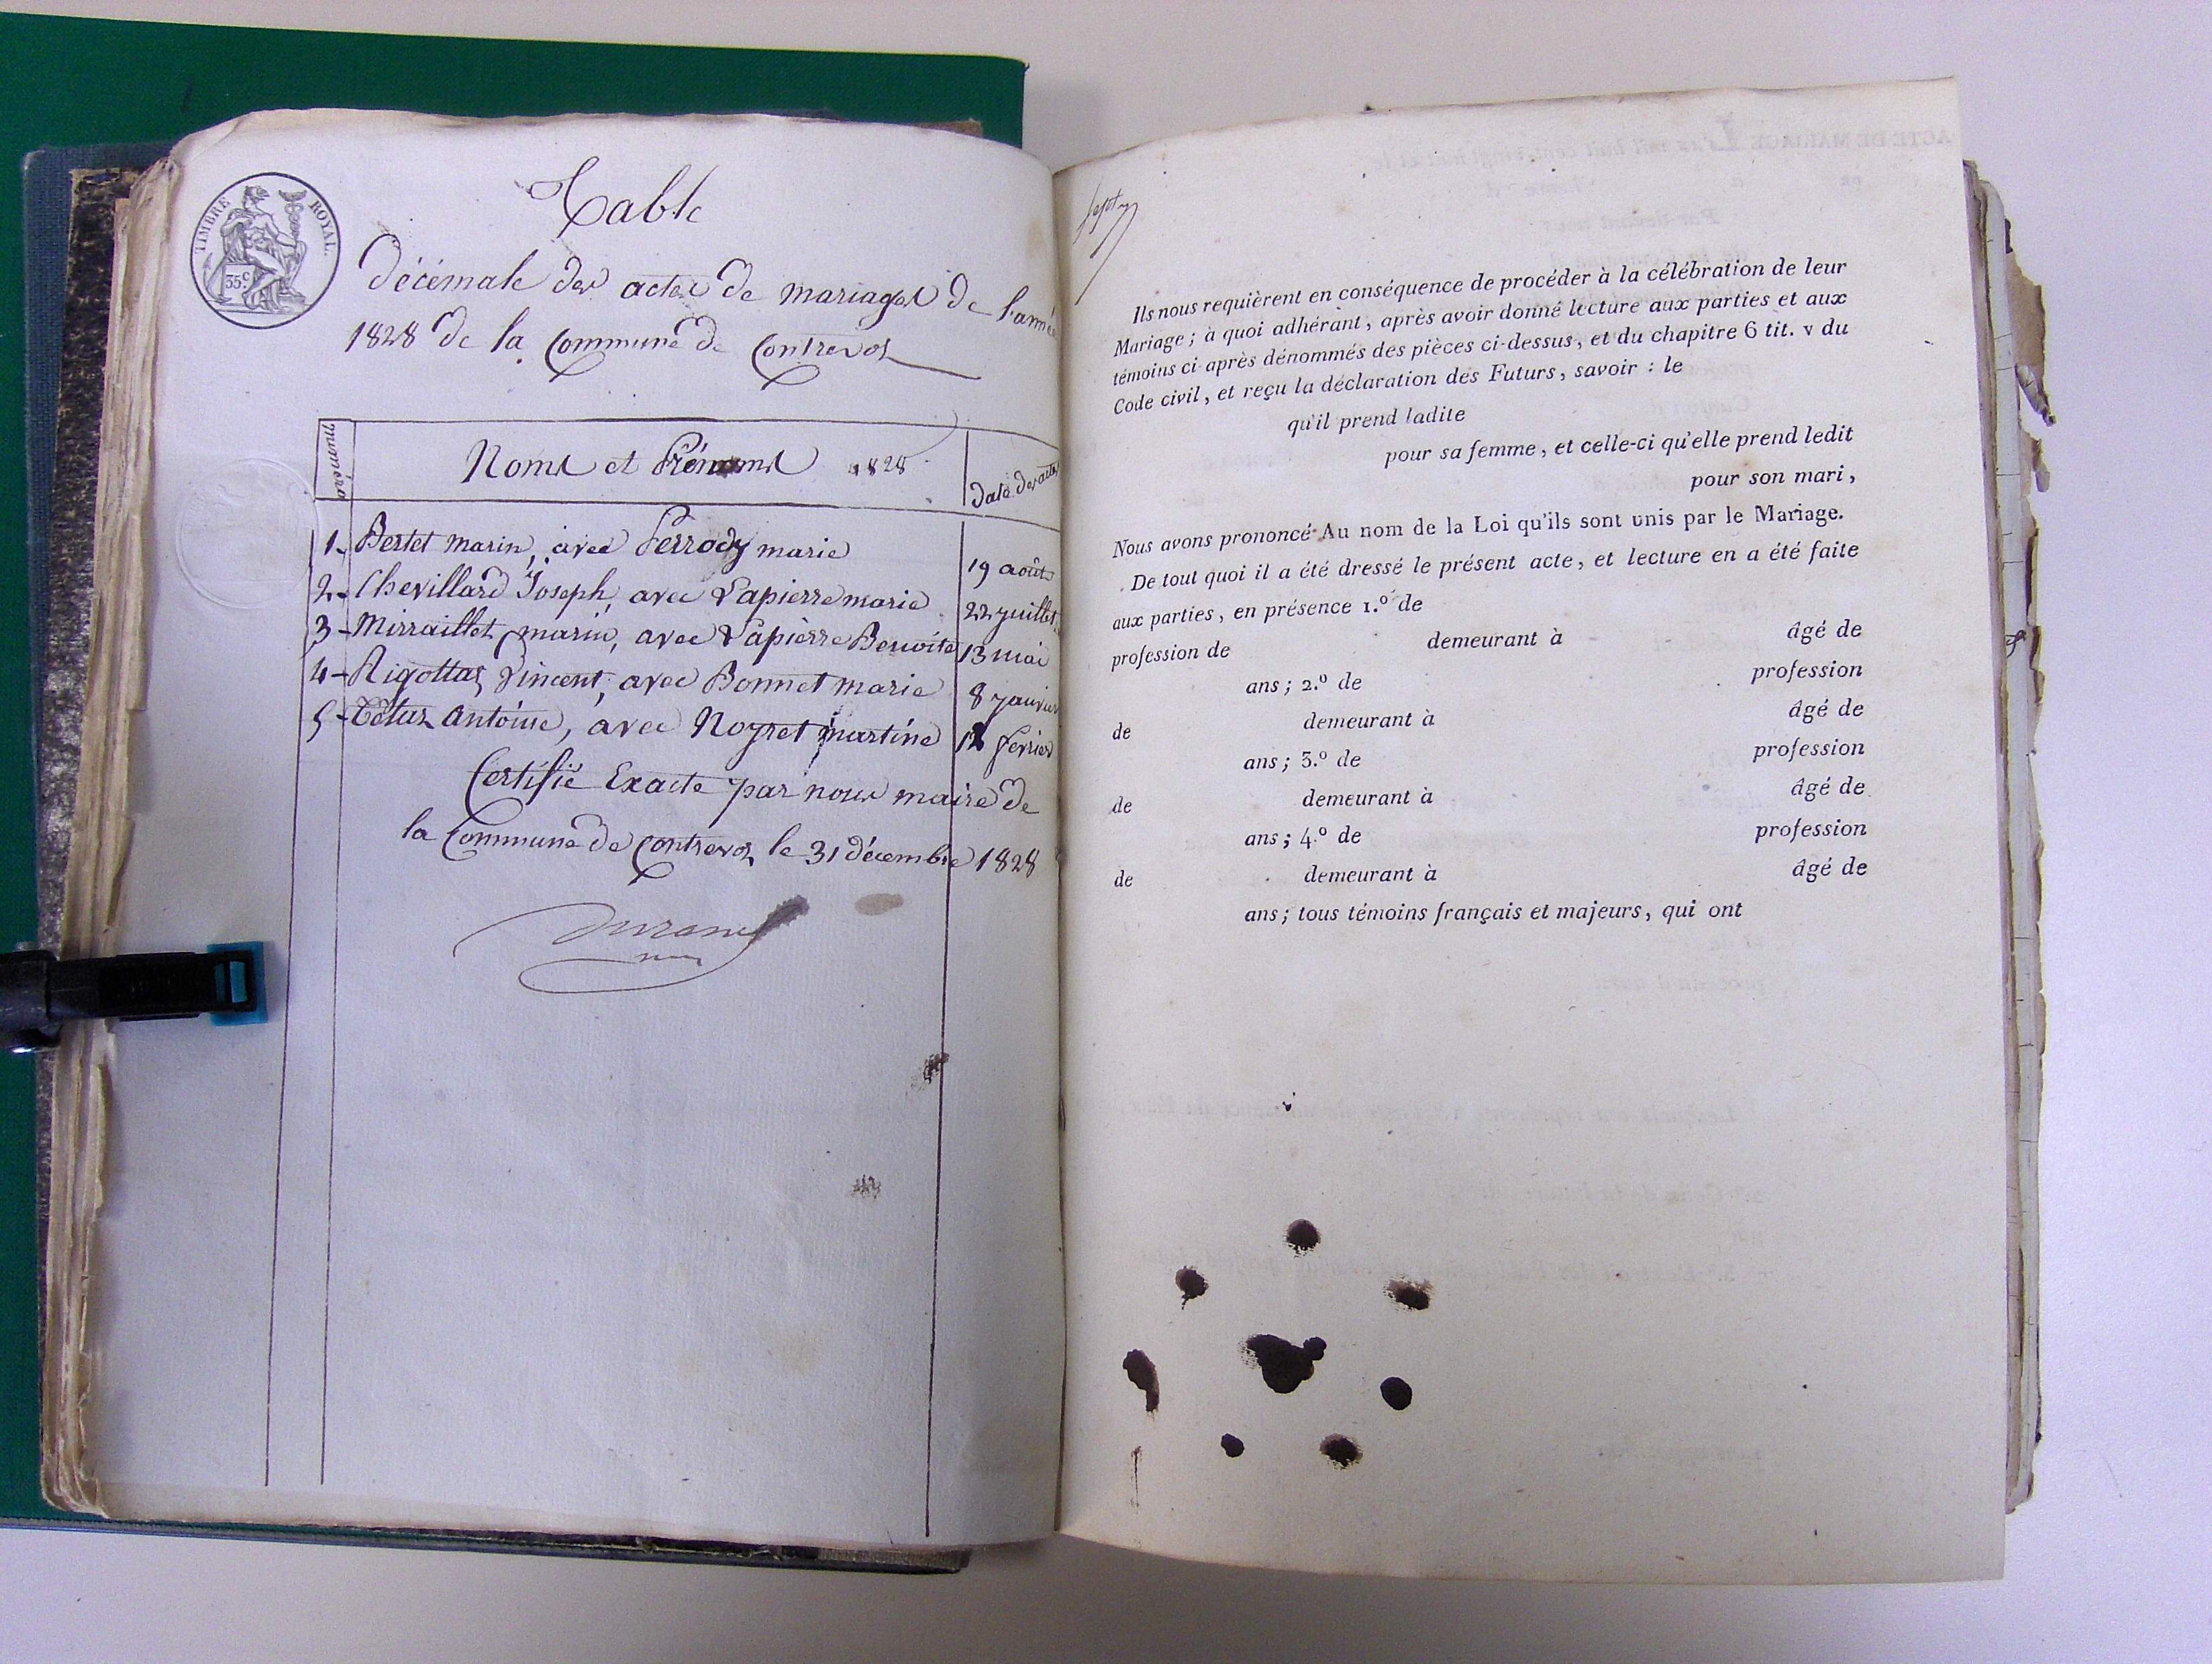 TIMBRE ROYAL.
35c.
Table
décémale des actes de mariages de l'année
1828 de la Commune de Contrevoz
numéro
Noms et Prénoms 1828
date des actes
1 - Bertet marin, avec Perrody marie 19 août
2 - Chevillard Joseph, avec Lapierre marie 22 juillet
3 - Mirraillet marin, avec Lapierre Benoite 13 mai
4 - Rigottaz Vincent, avec Bonnet marie 8 janvier
5 - Tétuz Antoine, avec Noyret martine 12 fevrier
Certifié Exacte par nous maire de
la Commune de Contrevoz le 31 décembre 1828
Durand
Ils nous requièrent en conséquence de procéder à la célébration de leur
Mariage ; à quoi adhérant, après avoir donné lecture aux parties et aux
témoins ci-après dénommés des pièces ci-dessus, et du chapitre 6 tit. v du
Code civil, et reçu la déclaration des Futurs, savoir : le
qu'il prend ladite
pour sa femme, et celle-ci qu'elle prend ledit
pour son mari,
Nous avons prononcé Au nom de la Loi qu'ils sont unis par le Mariage.
De tout quoi il a été dressé le présent acte, et lecture en a été faite
aux parties, en présence 1.º de
profession de demeurant à âgé de
ans ; 2.º de profession
de demeurant à âgé de
ans ; 3.º de profession
de demeurant à âgé de
ans ; 4.º de profession
de demeurant à âgé de
ans ; tous témoins français et majeurs, qui ont